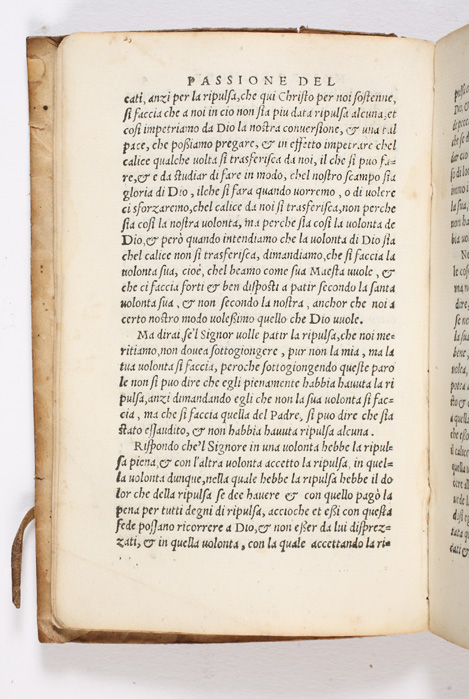 PASSIONE DEL
cati, anzi per la ripulsa, che qui Christo per noi sostenne,
si faccia che a noi in cio non sia piu data ripulsa alcuna; et
cosi impetriamo da Dio la nostra conuersione, & una tal
pace, che possiamo pregare, & in effetto impetrare chel
calice qualche uolta si trasferisca da noi, il che si puo fa=
re, & e da studiar di fare in modo, chel nostro scampo sia
gloria di Dio, ilche si fara quando uorremo, o di uolere
ci sforzaremo, chel calice da noi si trasferisca, non perche
sia cosi la nostra uolonta, ma perche sia cosi la uolonta de
Dio, & però quando intendiamo che la uolonta di Dio sia
chel calice non si trasferisca, dimandiamo, che si faccia la
uolonta sua, cioè, chel beamo come sua Maesta uuole, &
che ci faccia forti & ben disposti a patir secondo la santa
uolonta sua, & non secondo la nostra, anchor che noi a
certo nostro modo uolessimo quello che Dio uuole.
Ma dirai se'l Signor uolle patir la ripulsa, che noi me=
ritiamo, non douea sottogiongere, pur non la mia, ma la
tua uolonta si faccia, peroche sottogiongendo queste paro
le non si puo dire che egli pienamente habbia hauuta la ri
pulsa, anzi dimandando egli che non la sua uolonta si fac=
cia, ma che si faccia quella del Padre, si puo dire che sia
stato essaudito, & non habbia hauuta ripulsa alcuna.
Rispondo che'l Signore in una uolonta hebbe la ripul=
sa piena, & con l'altra uolonta accetto la ripulsa, in quel=
la uolonta dunque, nella quale hebbe la ripulsa hebbe il do
lor che della ripulsa se dee hauere & con quello pagò la
pena per tutti degni di ripulsa, accioche et essi con questa
fede possano ricorrere a Dio, & non esser da lui disprez=
zati, & in quella uolonta, con la quale accettando la ri=